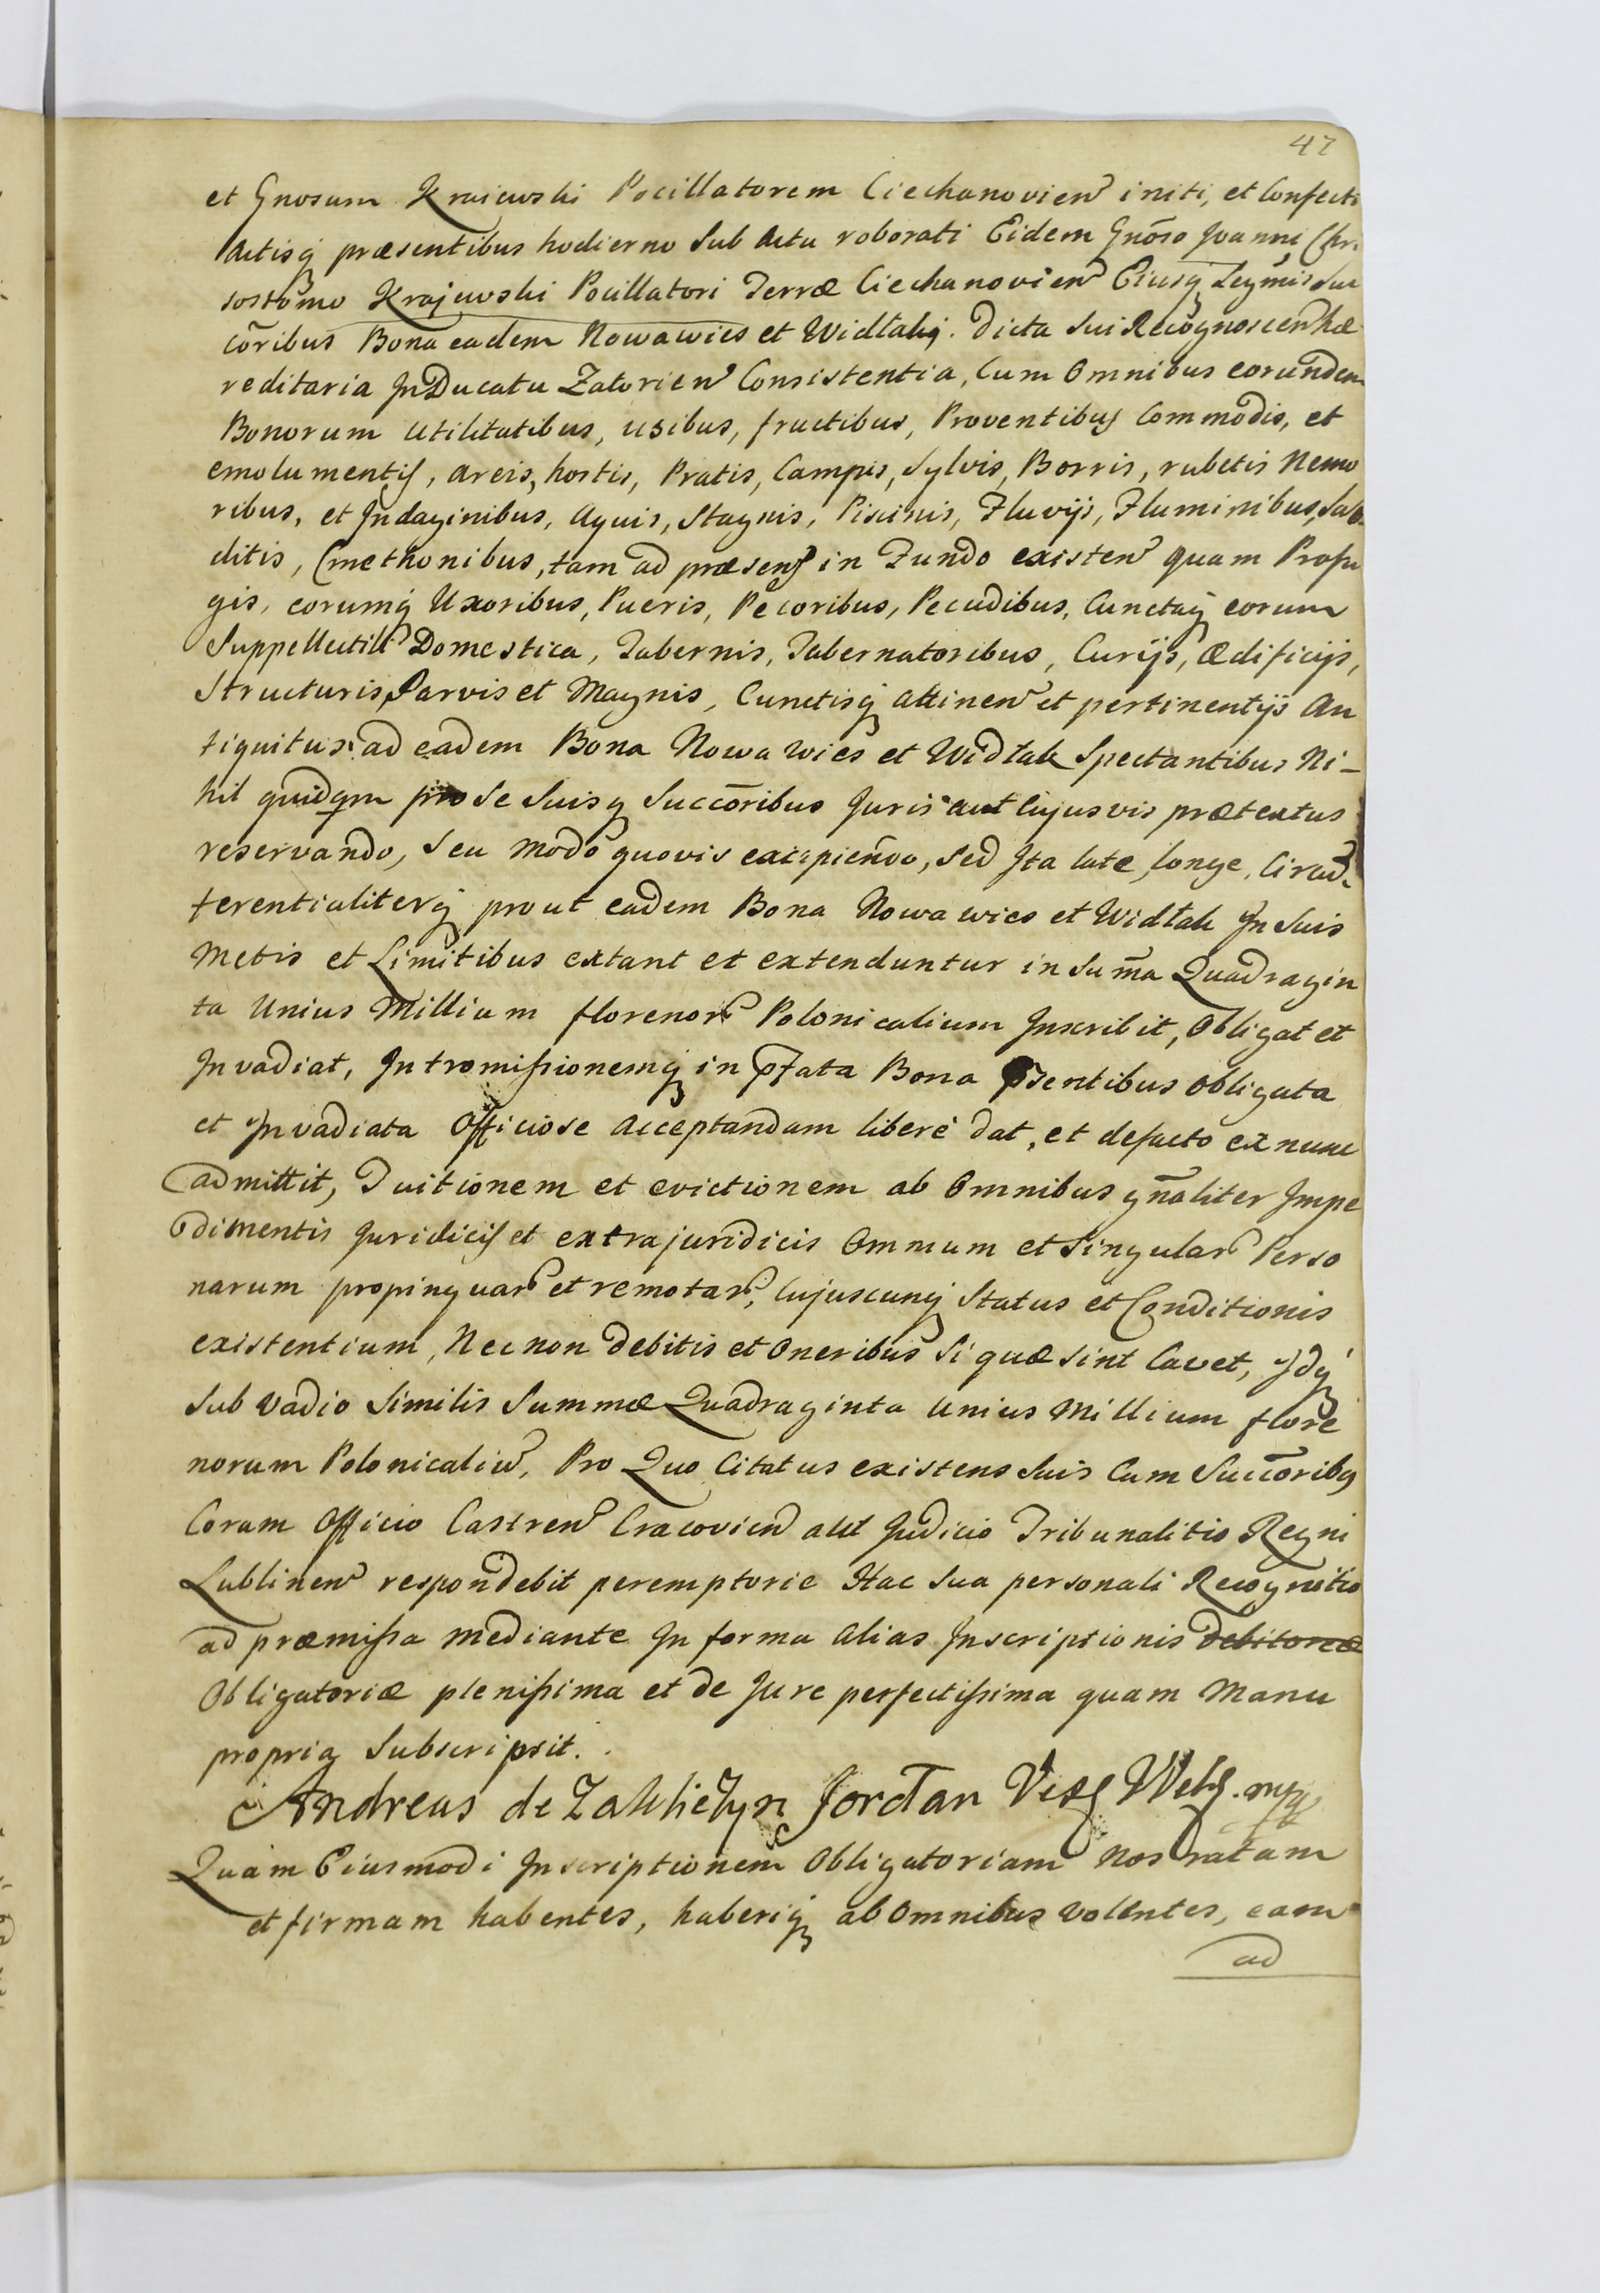 47
et Gnosum Kraiewski Pocillatorem Ciechanovien initi, et Confecti
Actisq præsentibus hodierno Sub Actu roborati Eidem Gnōso Joanni Chri
sostomo Krajewski Pocillatori Terræ Ciechanovien Eiusq Legmis Suc
cōribus Bona eadem Nowawies et Widłak. dicta Sui Recognoscen hæ
reditaria In Ducatu Zatorien Consistentia, Cum Omnibus eorundem
Bonorum Utilitatibus, usibus, fructibus, Proventibus Commodis, et
emolumentis, areis, hortis, Pratis, Campis, Sylvis, Borris, rubetis Nemo
ribus, et Indaginibus, Aquis, Stagnis, Piscinis, Fluvijs, Fluminibus, Sub
ditis, Cmethonibus, tam ad præsens in Fundo existen quam Profu
gis, eorumq Uxoribus, Pueris, Pecoribus, Pecudibus, Cunctaq eorum
Suppellectili Domestica, Tabernis, Tabernatoribus, Curijs, ædificijs,
Structuris Parvis et Magnis, Cunctisq attinen et pertinentijs An
tiquitus ad eadem Bona Nowawies et Widłak Spectantibus Ni-
hil quidqm pro se Suisq Succōribus Juris aut Cujusvis prætextus
reservando, Seu modo quovis excipiendo, Sed Ita late, longe, Circum
ferentialiterq prout eadem Bona Nowawies et Widłak In Suis
Metis et Limitibus extant et extenduntur in Sum̄a Quadragin
ta Unius Millium florenor Polonicalium Inscribit, Obligat et
Invadiat, Intromissionemq in pfata Bona psentibus Obligata
et Invadiata Officiose Acceptandam libere dat, et defacto ex nunc
admittit, Tuitionem et evictionem ab Omnibus gn̄aliter Impe
dimentis Juridicis et extrajuridicis Omnium et Singular Perso
narum propinquar et remotar, Cujuscunq Status et Conditionis
existentium, Nec non debitis et Oneribus Si quæ sint Cavet, Idq
Sub Vadio Similis Summæ Quadraginta Unius Millium flore
norum Polonicaliu, Pro Quo Citatus existens Suis Cum Succōribus
Coram Officio Castren Cracovien aut Judicio Tribunalitio Regni
Lublinen respondebit peremptorie Hac Sua personali Recognitio
ad præmissa mediante In forma Alias Inscriptionis debitoreæ
Obligatoriæ plenissima et de Jure perfectissima quam Manu
propria Subscripsit.
Andreas de Zakliczyn Jordan
Quam Eiusmodi Inscriptionem Obligatoriam Nos ratam
et firmam habentes, haberiq ab Omnibus Volentes, eam
ad